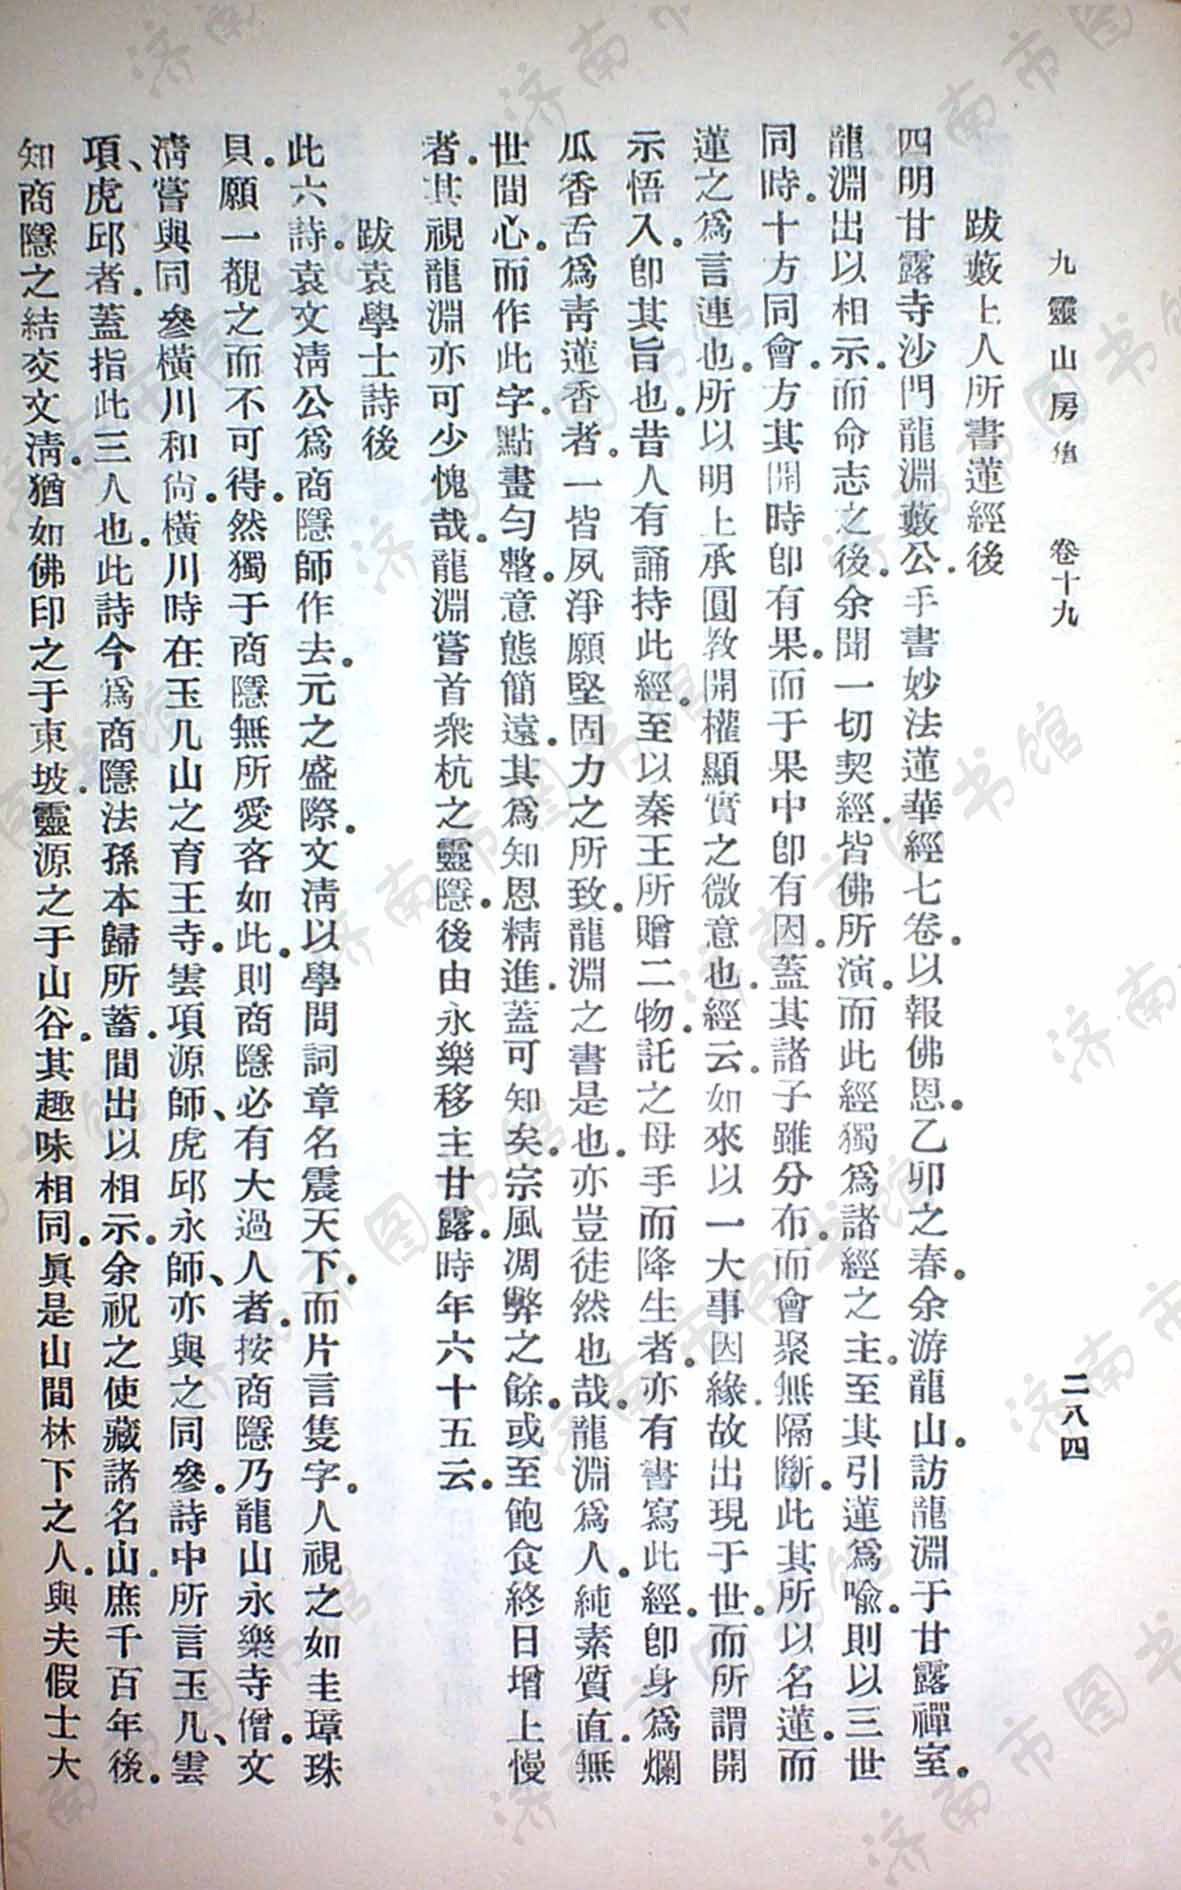 九靈山房集 卷十九 二八四
跋藪上人所書蓮經後
四明甘露寺沙門龍淵藪公。手書妙法蓮華經七卷。以報佛恩。乙卯之春。余游龍山。訪龍淵于甘露禪室。
龍淵出以相示。而命志之後。余聞一切契經。皆佛所演。而此經獨爲諸經之主。至其引蓮爲喻。則以三世
同時。十方同會。方其開時卽有果。而于果中卽有因。蓋其諸子雖分布。而會聚無隔斷。此其所以名蓮。而
蓮之爲言連也。所以明上承圓教開權顯實之微意也。經云。如來以一大事因緣故出現于世。而所謂開
示悟入。卽其旨也。昔人有誦持此經。至以秦王所贈二物。託之母手而降生者。亦有書寫此經。卽身爲爛
瓜香舌爲靑蓮香者。一皆夙淨願堅固力之所致。龍淵之書是也。亦豈徒然也哉。龍淵爲人。純素質直。無
世間心。而作此字。點畫勻整。意態簡遠。其爲知恩精進。蓋可知矣。宗風凋弊之餘。或至飽食終日增上慢
者。其視龍淵亦可少愧哉。龍淵嘗首衆杭之靈隱。後由永樂移主甘露。時年六十五云。
跋袁學士詩後
此六詩。袁文淸公爲商隱師作去。元之盛際。文淸以學問詞章名震天下。而片言隻字。人視之如圭璋珠
貝。願一覩之而不可得。然獨于商隱無所愛吝如此。則商隱必有大過人者。按商隱乃龍山永樂寺僧。文
淸嘗與同參橫川和尙。橫川時在玉几山之育王寺。雲項源師、虎邱永師、亦與之同參。詩中所言玉几、雲
項、虎邱者。蓋指此三人也。此詩今爲商隱法孫本歸所蓄。間出以相示。余祝之使藏諸名山。庶千百年後。
知商隱之結交文淸。猶如佛印之于東坡。靈源之于山谷。其趣味相同。眞是山間林下之人。與夫假士大